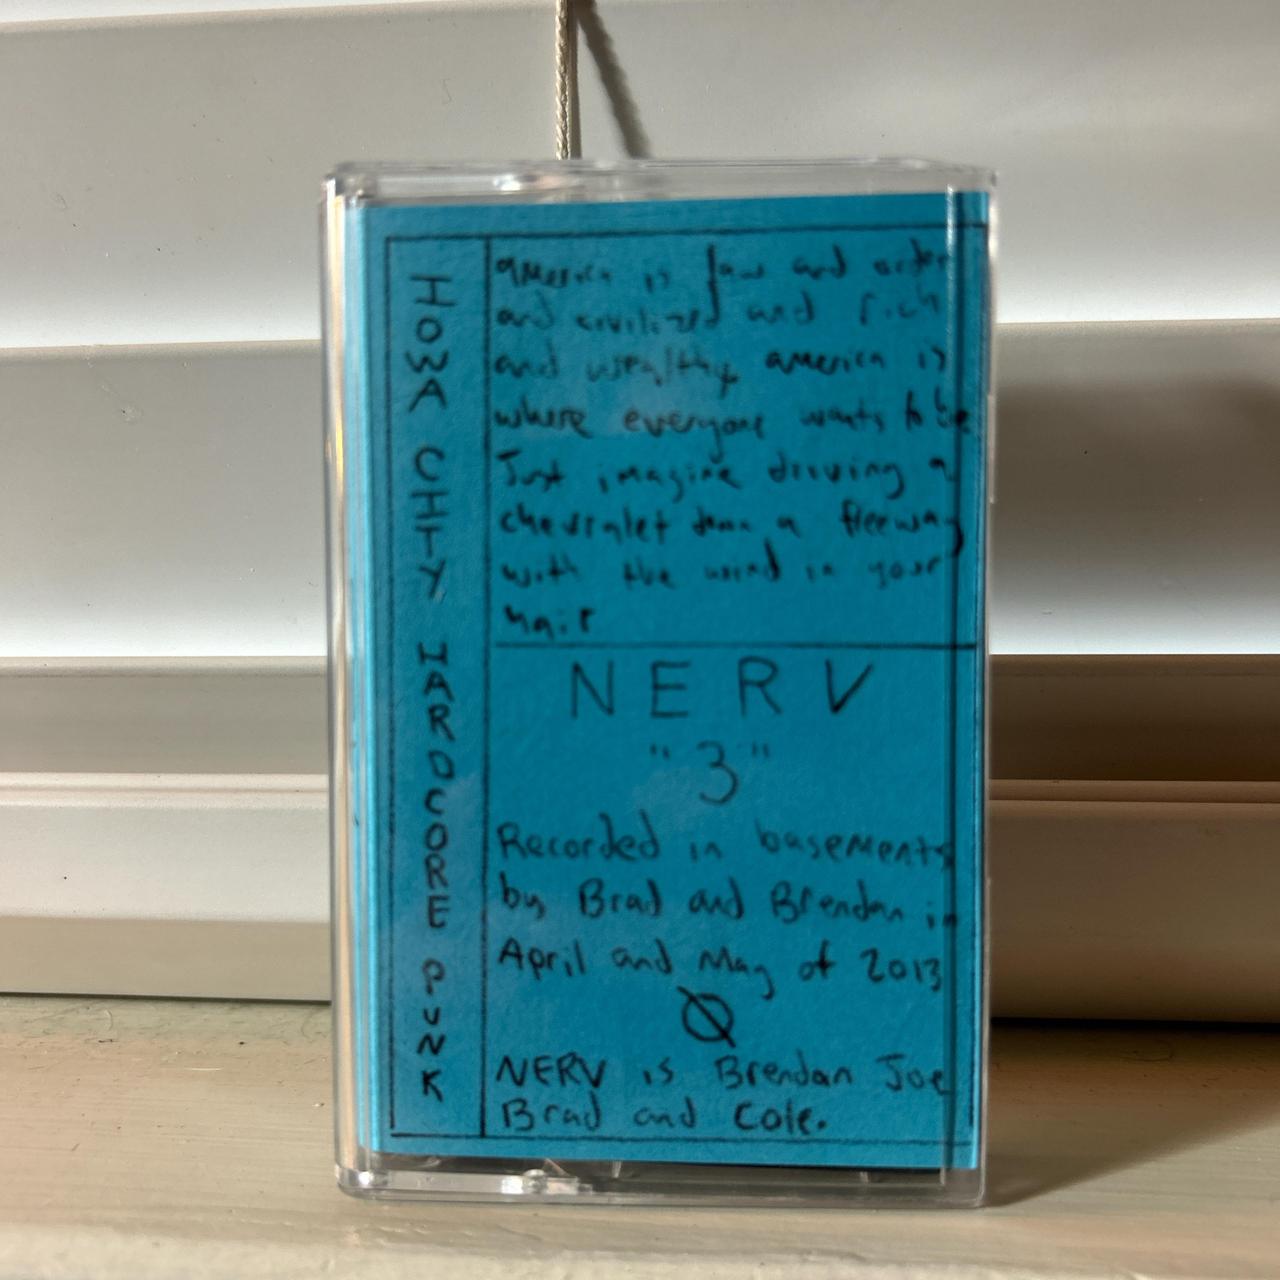 IOWA CITY HARDCORE PUNK
america is law and order
and civilized and rich
and wealthy america is
where everyone wants to be
Just imagine driving a
chevralet down a freeway
with the wind in your
hair
NERV
"3"
Recorded in basements
by Brad and Brendan in
April and May of 2013
Ø
NERV is Brendan Joe
Brad and Cole.